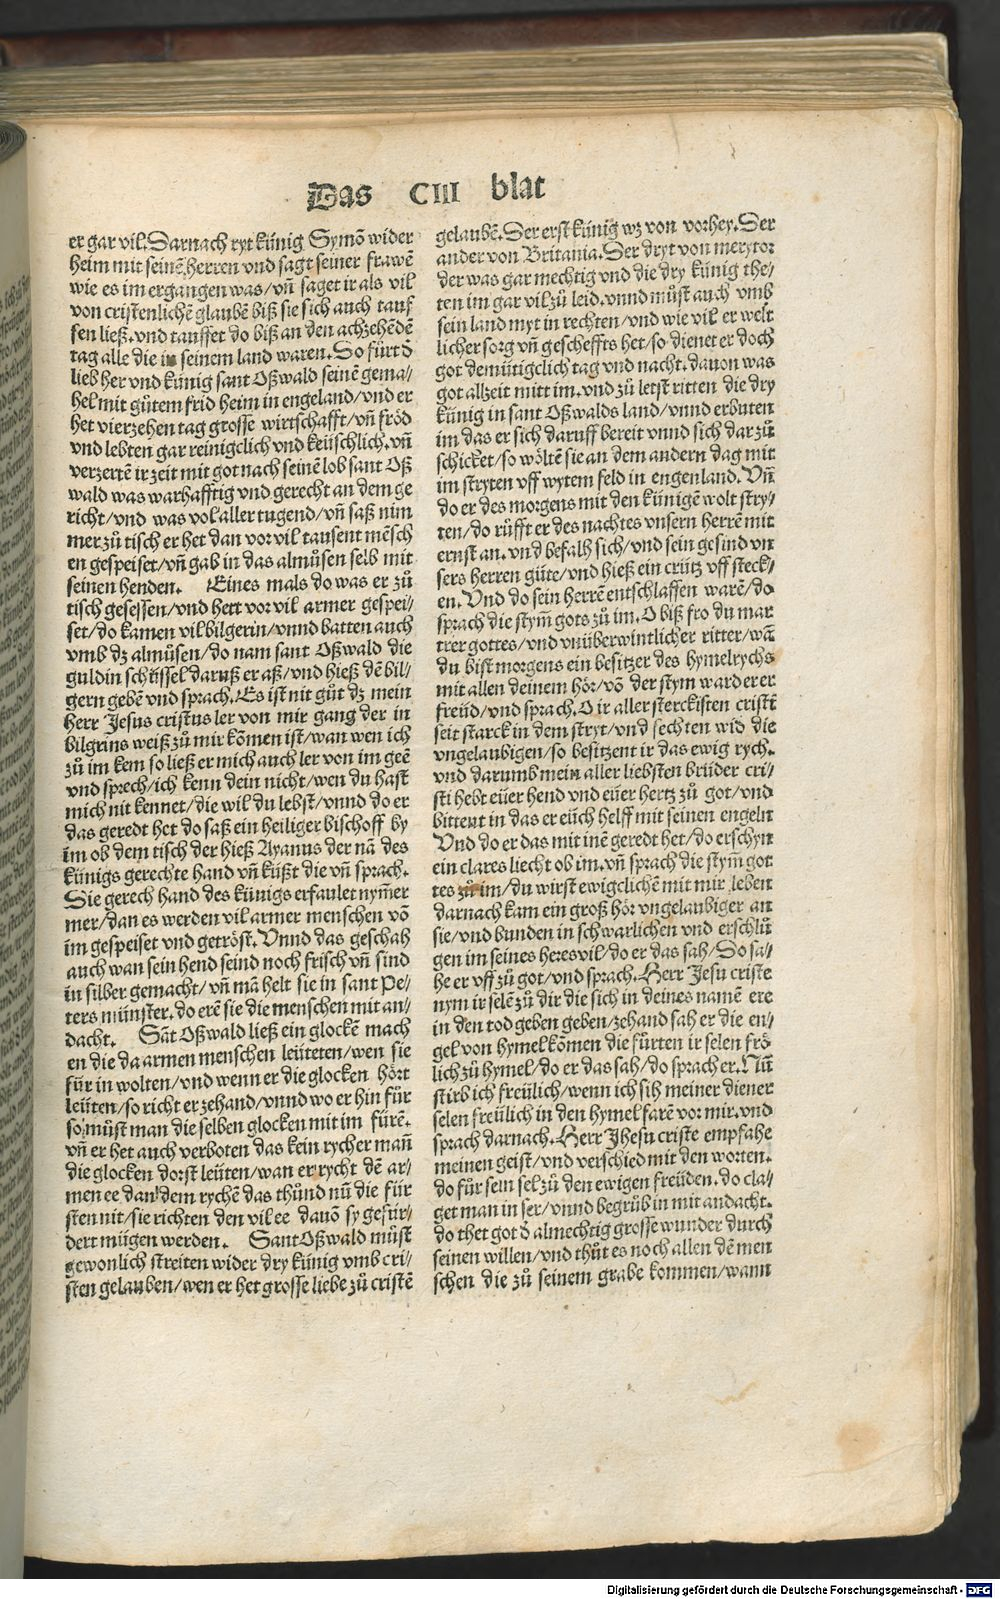 Das CIII blat
er gar vil. Darnach ryt künig Symō wider
heim mit seinē herren vnd sagt seiner frawē
wie es im ergangen was/ vn̄ saget ir als vil
von cristenlichē glaubē biß sie sich auch tauf
sen ließ. vnd tauffet do biß an den achzehēdē
tag alle die in seinem land waren. So fürt d̄
lieb her vnd künig sant Oßwald seinē gema/
hel mit gůtem frid heim in engeland/ vnd er
het vierzehen tag grosse wirtschafft/ vn̄ fröd
vnd lebten gar reinigclich vnd keüschlich. vn̄
verzertē ir zeit mit got nach seinē lob sant Oß
wald was warhafftig vnd gerecht an dem ge
richt/ vnd was vol aller tugend/ vn̄ saß nim
mer zů tisch er het dan vor vil tausent mēsch
en gespeiset/ vn̄ gab in das almůsen selb mit
seinen henden. Eines mals do was er zů
tisch gesessen/ vnd hett vor vil armer gespei/
set/ do kamen vil bilgerin/ vnnd batten auch
vmb dz almůsen/ do nam sant Oßwald die
guldin schüssel daruß er aß/ vnd hieß dē bil/
gern gebē vnd sprach. Es ist nit gůt dz mein
herr Jesus cristus ler von mir gang der in
bilgrins weiß zů mir kōmen ist/ wan wen ich
zů im kem so ließ er mich auch ler von im geē
vnd sprech/ ich kenn dein nicht/ wen du hast
mich nit kennet/ die wil du lebst/ vnnd do er
das geredt het do saß ein heiliger bischoff by
im ob dem tisch der hieß Ayanus der nā des
künigs gerechte hand vn̄ küßt die vn̄ sprach.
Die gerech hand des künigs erfaulet nym̄er
mer/ dan es werden vil armer menschen vō
im gespeiset vnd getröst. Vnnd das geschah
auch wan sein hend seind noch frisch vn̄ sind
in silber gemacht/ vn̄ mā helt sie in sant Pe/
ters münster. do erē sie die menschen mit an/
dacht. Sāt Oßwald ließ ein glockē mach
en die da armen menschen leüteten/ wen sie
für in wolten/ vnd wenn er die glocken hört
leüten/ so richt er zehand/ vnnd wo er hin für
so můst man die selben glocken mit im fürē.
vn̄ er het auch verboten das kein rycher man̄
die glocken dorst leüten/ wan er rycht dē ar/
men ee dan dem rychē das thůnd nū die für
sten nit/ sie richten den vil ee dauō sy gefür/
dert mügen werden. Sant Oßwald můst
gewonlich streiten wider dry künig vmb cri/
sten gelauben/ wen er het grosse liebe zů cristē
gelaubē. Der erst künig wz von vorhey. Der
ander von Britania. Der dryt von merytor
der was gar mechtig vnd die dry künig the/
ten im gar vil zů leid. vnnd můst auch vmb
sein land myt in rechten/ vnd wie vil er welt
licher sorg vn̄ gescheffts het/ so dienet er doch
got demütigclich tag vnd nacht. dauon was
got allzeit mitt im. vnd zů letst ritten die dry
künig in sant Oßwalds land/ vnnd erbuten
im das er sich daruff bereit vnnd sich dar zů
schicket/ so wöltē sie an dem andern dag mit
im stryten vff wytem feld in engenland. Vn̄
do er des morgens mit den künigē wolt stry/
ten/ do rüfft er des nachtes vnsern herrē mit
ernst an. vnd befalh sich/ vnd sein gesind vn
sers herren güte/ vnd hieß ein crütz vff steck/
en. Vnd do sein herrē entschlaffen warē/ do
sprach die stym̄ gots zů im. O biß fro du mar
trer gottes/ vnd vnüberwintlicher ritter/ wā
du bist morgens ein besitzer des hymelrychs
mit allen deinem hör/ vō der stym ward er er
freüd/ vnd sprach. O ir aller sterckisten cristē
seit starck in dem stryt/ vnd fechten wid die
vngelaubigen/ so besitzent ir das ewig rych.
vnd darumb mein aller liebsten brüder cri/
sti hebt eüer hend vnd eüer hertz zů got/ vnd
bittent in das er eüch helff mit seinen engeln
Vnd do er das mit inē geredt het/ do erschyn
ein clares liecht ob im. vn̄ sprach die stym̄ got
tes zů im/ du wirst ewigclichē mit mir leben
darnach kam ein groß hör vngelaubiger an
sie/ vnd bunden in schwarlichen vnd erschlů
gen im seines heres vil/ do er das sah/ So sa/
he er vff zů got/ vnd sprach. Herr Jesu criste
nym ir selē zů dir die sich in deines namē ere
in den tod geben geben/ zehand sah er die en/
gel von hymel kōmen die fürten ir selen frö
lich zů hymel/ do er das sah/ do sprach er. Nun̄
stirb ich freülich/ wenn ich sih meiner diener
selen freülich in den hymel farē vor mir. vnd
sprach darnach. Herr Jhesu criste empfahe
meinen geist/ vnd verschied mit den worten.
do für sein sel zů den ewigen freüden. do cla/
get man in ser/ vnnd begrůb in mit andacht.
do thet got d̄ almechtig grosse wunder durch
seinen willen/ vnd thůt es noch allen dē men
schen die zů seinem grabe kommen/ wann
Digitalisierung gefördert durch die Deutsche Forschungsgemeinschaft - DFG